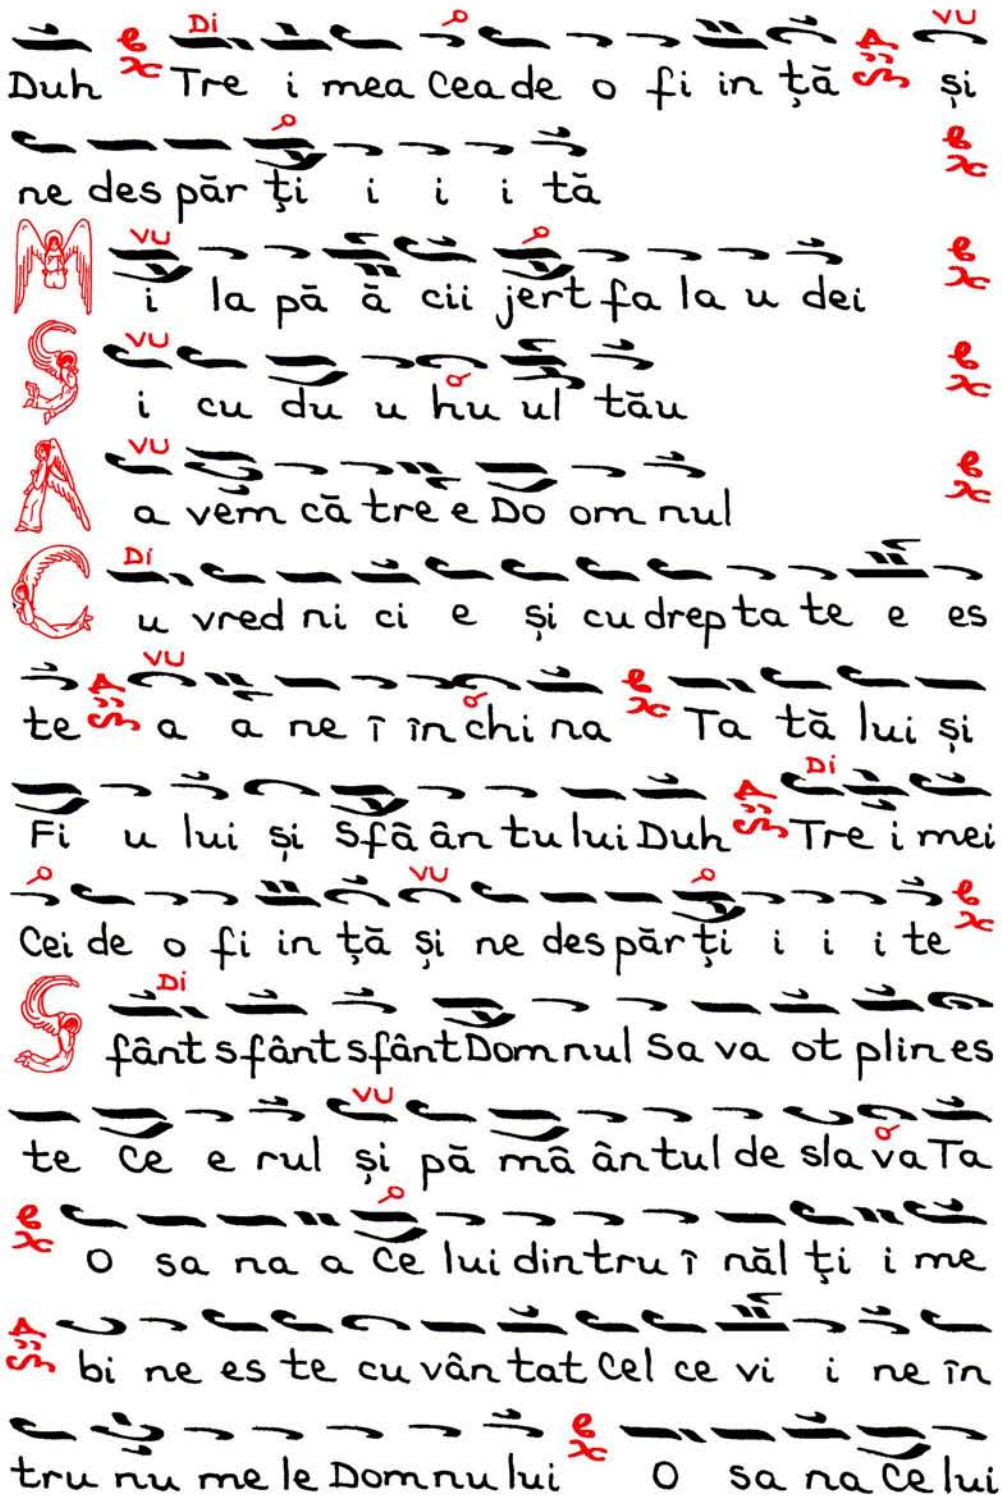 Di VU
Duh Tre i mea Cea de o fi in ță și
ne des păr ți i i i tă
VU
M i la pă ă cii jert fa la u dei
VU
S i cu du u hu ul tău
VU
A a vem că tre e Do om nul
Di
C u vred ni ci e și cu drep ta te e es
VU
te a a ne î în chi na Ta tă lui și
Di
Fi u lui și Sfâ ân tu lui Duh Tre i mei
VU
Cei de o fi in ță și ne des păr ți i i i te
Di
S fânt sfânt sfânt Dom nul Sa va ot plin es
VU
te Ce e rul și pă mâ ân tul de sla va Ta
O sa na a Ce lui din tru î năl ți i me
bi ne es te cu vân tat Cel ce vi i ne în
tru nu me le Dom nu lui O sa na Ce lui